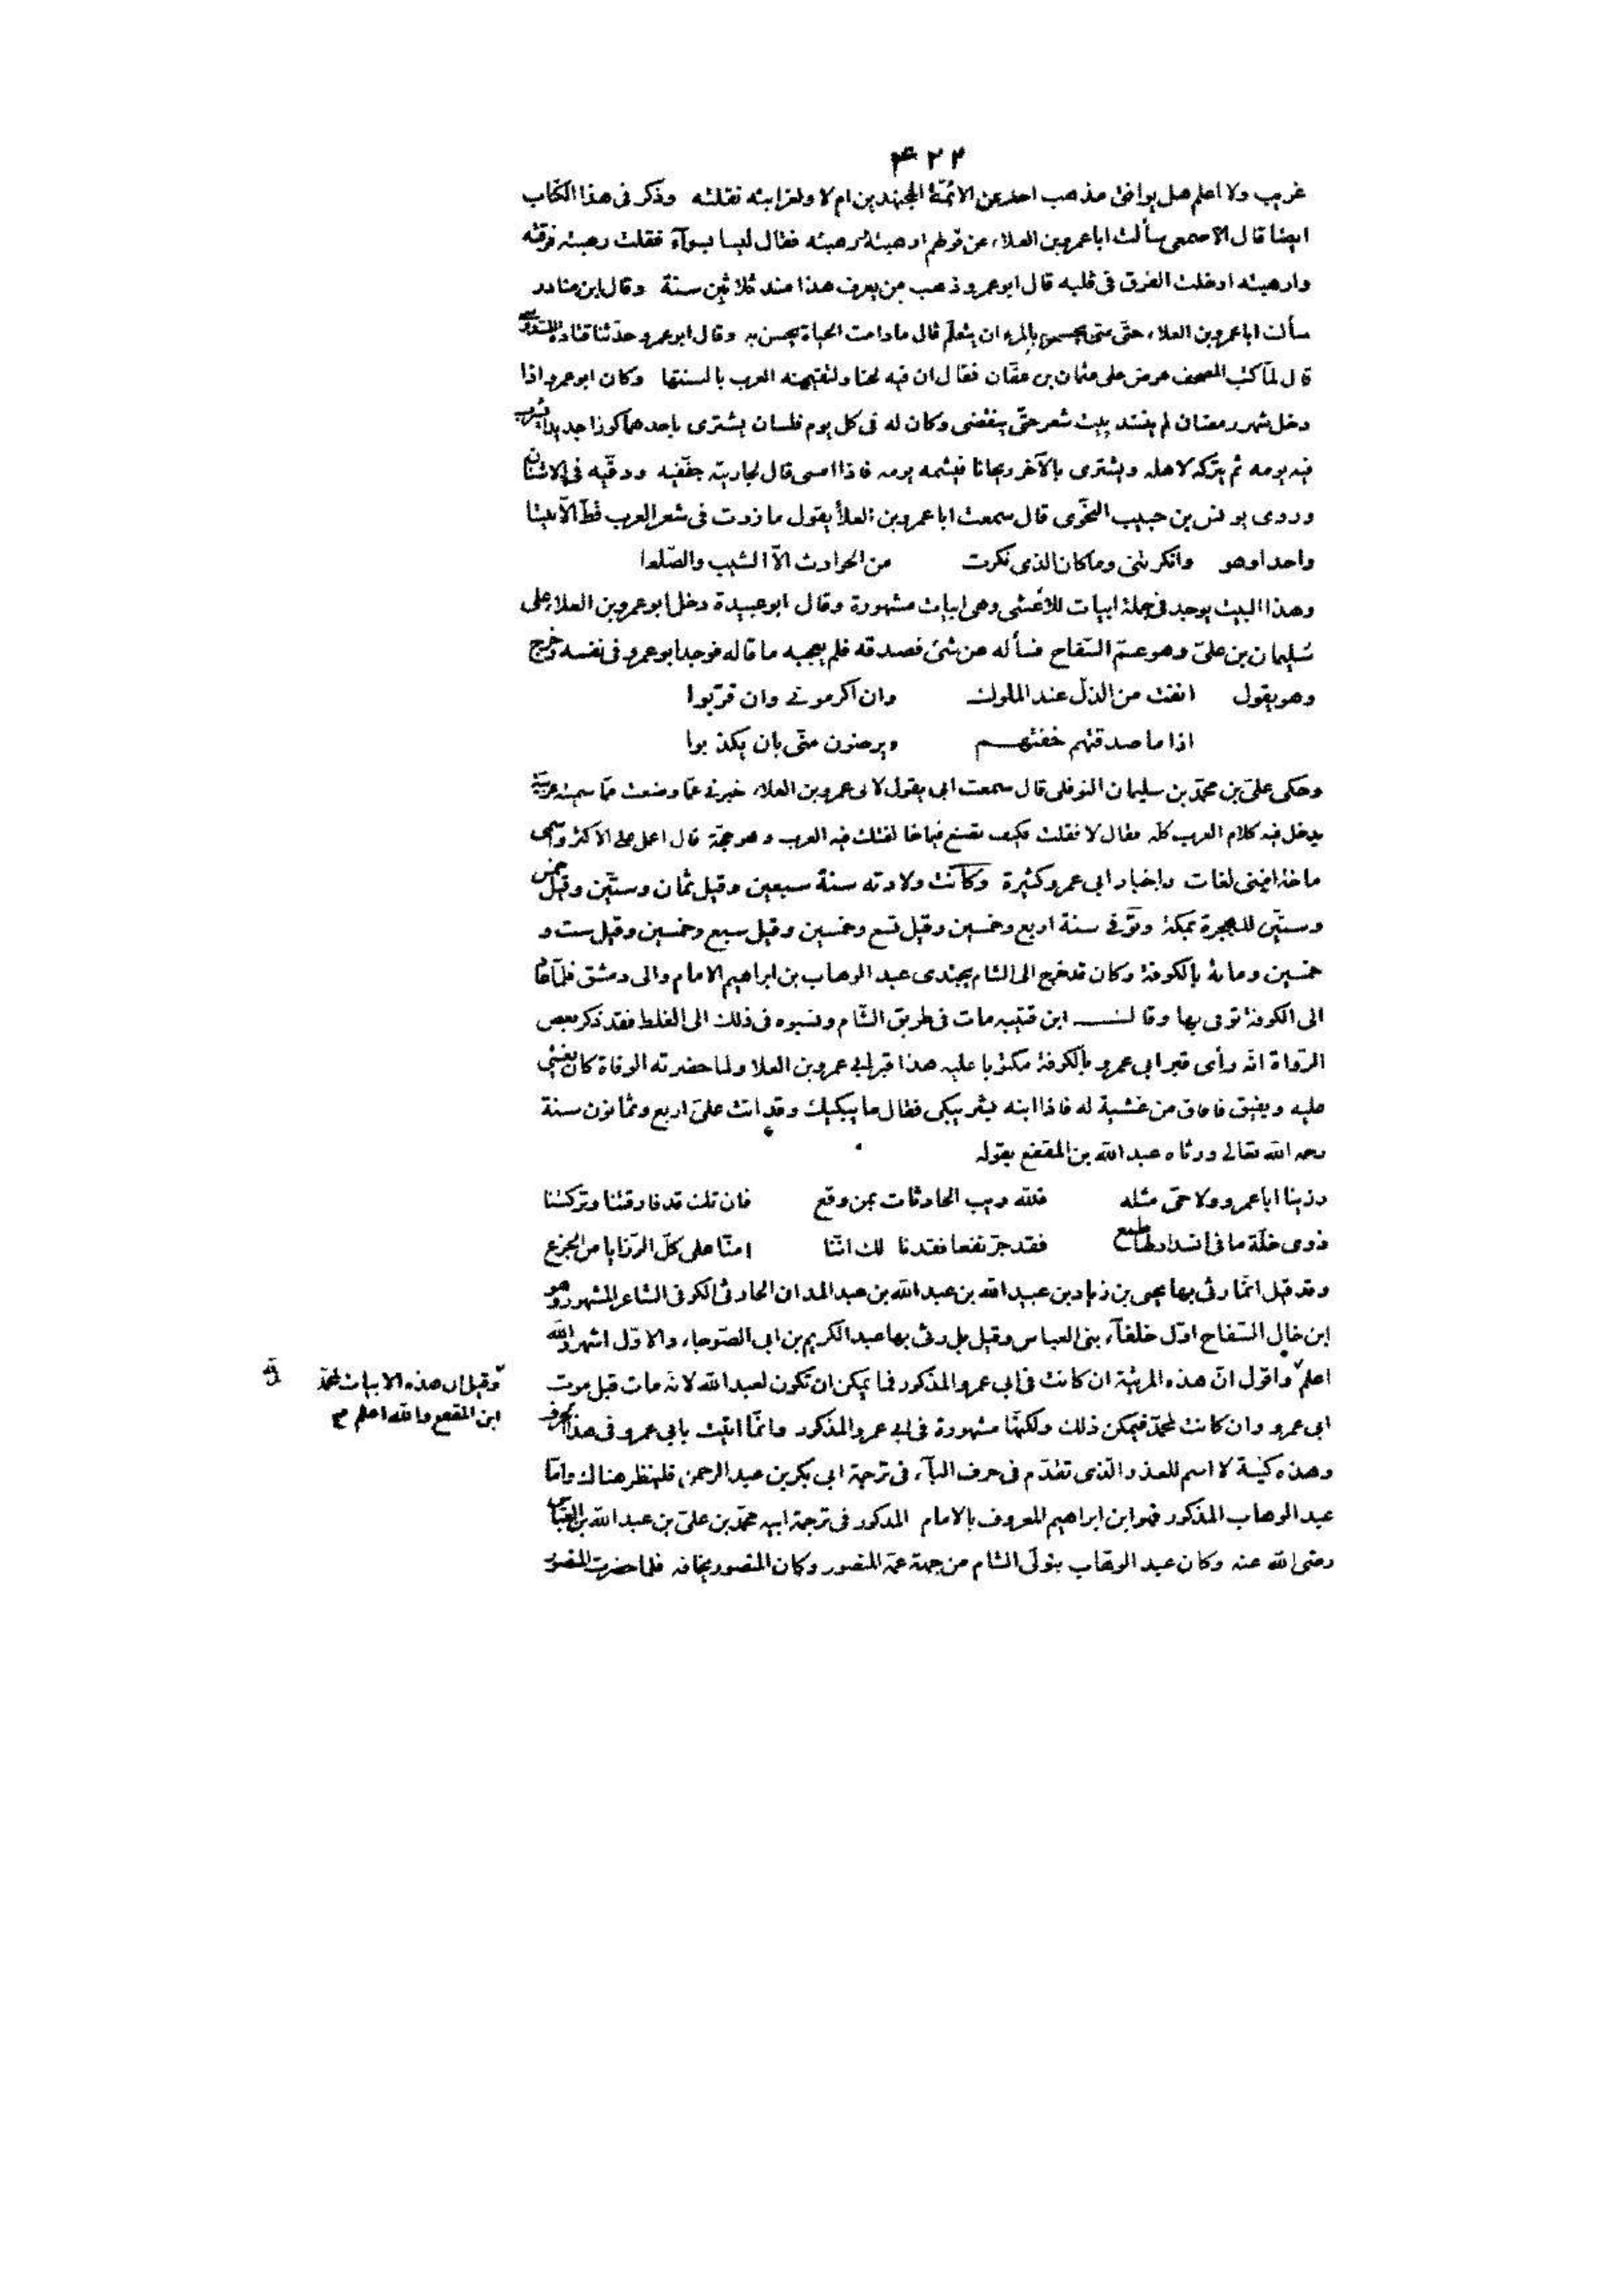 ۴۲۲
غريب ولا اعلم هل يوافق مذهب احد من الائمّة المجتهدين ام لا ولغرابته نقلته وذكر فى هذا الكتاب
ايضا قال الاصمعى سألت ابا عمرو بن العلاء عن قولهم ارهبته رهبته فقال ليسا بسوآء فقلت رهبته فرقته
وارهبته ادخلت الفرق فى قلبه قال ابو عمرو ذهب من يعرف هذا منذ ثلاثين سنة وقال ابن مناذر
سألت ابا عمرو بن العلاء حتّى متى يحسن بالمرء ان يتعلّم قال مادامت الحياة يحسن به وقال ابو عمرو حدّثنا قتادة السّدوسى
قال لمّا كتب المصحف عرض على عثمان بن عفّان فقال ان فيه لحنا ولتقيمنه العرب بالسنتها وكان ابو عمرو اذا
دخل شهر رمضان لم ينشد بيت شعر حتّى ينقضى وكان له فى كل يوم فلسان يشترى باحدهما كوزا جديدا يشرب
فيه يومه ثم يتركه لاهله ويشترى بالآخر ريحانا فيشمه يومه فاذا امسى قال لجاريته جفّفيه ودقّيه فى الاشنان
وروى يونس بن حبيب النحّوى قال سمعت ابا عمرو بن العلأ يقول ما زدت فى شعر العرب قطّ الاّ بيتا
واحدا وهو وانكرتنى وما كان الذى نكرت من الحوادث الاّ الشيب والصّلعا
وهذا البيت يوجد فى جملة ابيات للأعشى وهى ابيات مشهورة وقال ابو عبيدة دخل ابو عمرو بن العلاء على
سُليمان بن علىّ وهو عمّ السّفاح فسأله عن شئ فصدقه فلم يعجبه ما قاله فوجد ابو عمرو فى نفسه وخرج
وهو يقول انفت من الذلّ عند الملوك وان اكرمونى وان قرّبوا
اذا ما صدقتهم خفتهم ويرضون منّى بان يكذبوا
وحكى علىّ بن محمّد بن سليمان النوفلى قال سمعت ابى يقول لابى عمرو بن العلاء خبرنى عمّا وضعت ممّا سميته عربيّة
يدخل فيه كلام العرب كلّه فقال لا فقلت فكيف تصنع فيما خالفتك فيه العرب وهو حجّة قال اعمل على الاكثر واسمى
ما خالفنى لغات واخبار ابى عمرو كثيرة وكانت ولادته سنة سبعين وقيل ثمان وستّين وقيل خمس
وستّين للهجرة بمكة وتوّفى سنة اربع وخمسين وقيل تسع وخمسين وقيل سبع وخمسين وقيل ست و
خمسين ومائة بالكوفة وكان قد خرج الى الشام يجتدى عبد الوهاب بن ابراهيم الامام والى دمشق فلمّا عاد
الى الكوفة توفى بها وقال ابن قتيبه مات فى طريق الشّام ونسبوه فى ذلك الى الغلط فقد ذكر بعض
الرّواة انّه رأى قبر ابى عمرو بالكوفة مكتوبا عليه هذا قبر ابى عمرو بن العلا ولما حضرته الوفاة كان يغشى
عليه ويفيق فافاق من غشية له فاذا ابنه بشر يبكى فقال ما يبكيك وقد اتت علىّ اربع وثمانون سنة
رحمه اللّه تعالى ورثاه عبد اللّه بن المقفع بقوله
رزينا ابا عمرو ولا حىّ مثله فللّه ريب الحادثات بمن وقع فان تك قد فارقتنا وتركتنا
ذوى خلّة ما فى انسداد لها طمع فقد جرّ نفعا فقدنا لك انّنا امنّا على كلّ الرّزايا من الجزع
وقد قيل انّما رثى بها يحيى بن زياد بن عبيد اللّه بن عبد اللّه بن عبد المدان الحارثى الكوفى الشاعر المشهور وهو
ابن خال السّفاح اوّل خلفآء بنى العباس وقيل بل رثى بها عبد الكريم بن ابى العوجاء والاوّل اشهر واللّه
اعلم واقول انّ هذه المرثية ان كانت فى ابى عمرو المذكور فما يمكن ان تكون لعبد اللّه لانه مات قبل موت
وقيل ان هذه الابيات لمحمّد
ابى عمرو وان كانت لمحمّد فيمكن ذلك ولكنّها مشهورة فى ابى عمرو المذكور وانمّا اثبت بابى عمرو فى هذا الحرف
ابن المقفع واللّه اعلم
وهذه كنية لا اسم للعذر الّذى تقدّم فى حرف البآء فى ترجمة ابى بكر بن عبد الرحمن فلينظر هناك وامّا
عبد الوهاب المذكور فهو ابن ابراهيم المعروف بالامام المذكور فى ترجمة ابيه محمّد بن علىّ بن عبد اللّه بن العبّاس
رضى اللّه عنه وكان عبد الوهّاب يتولّى الشام من جهة عمّه المنصور وكان المنصور يخافه فلما حضرت المنصور